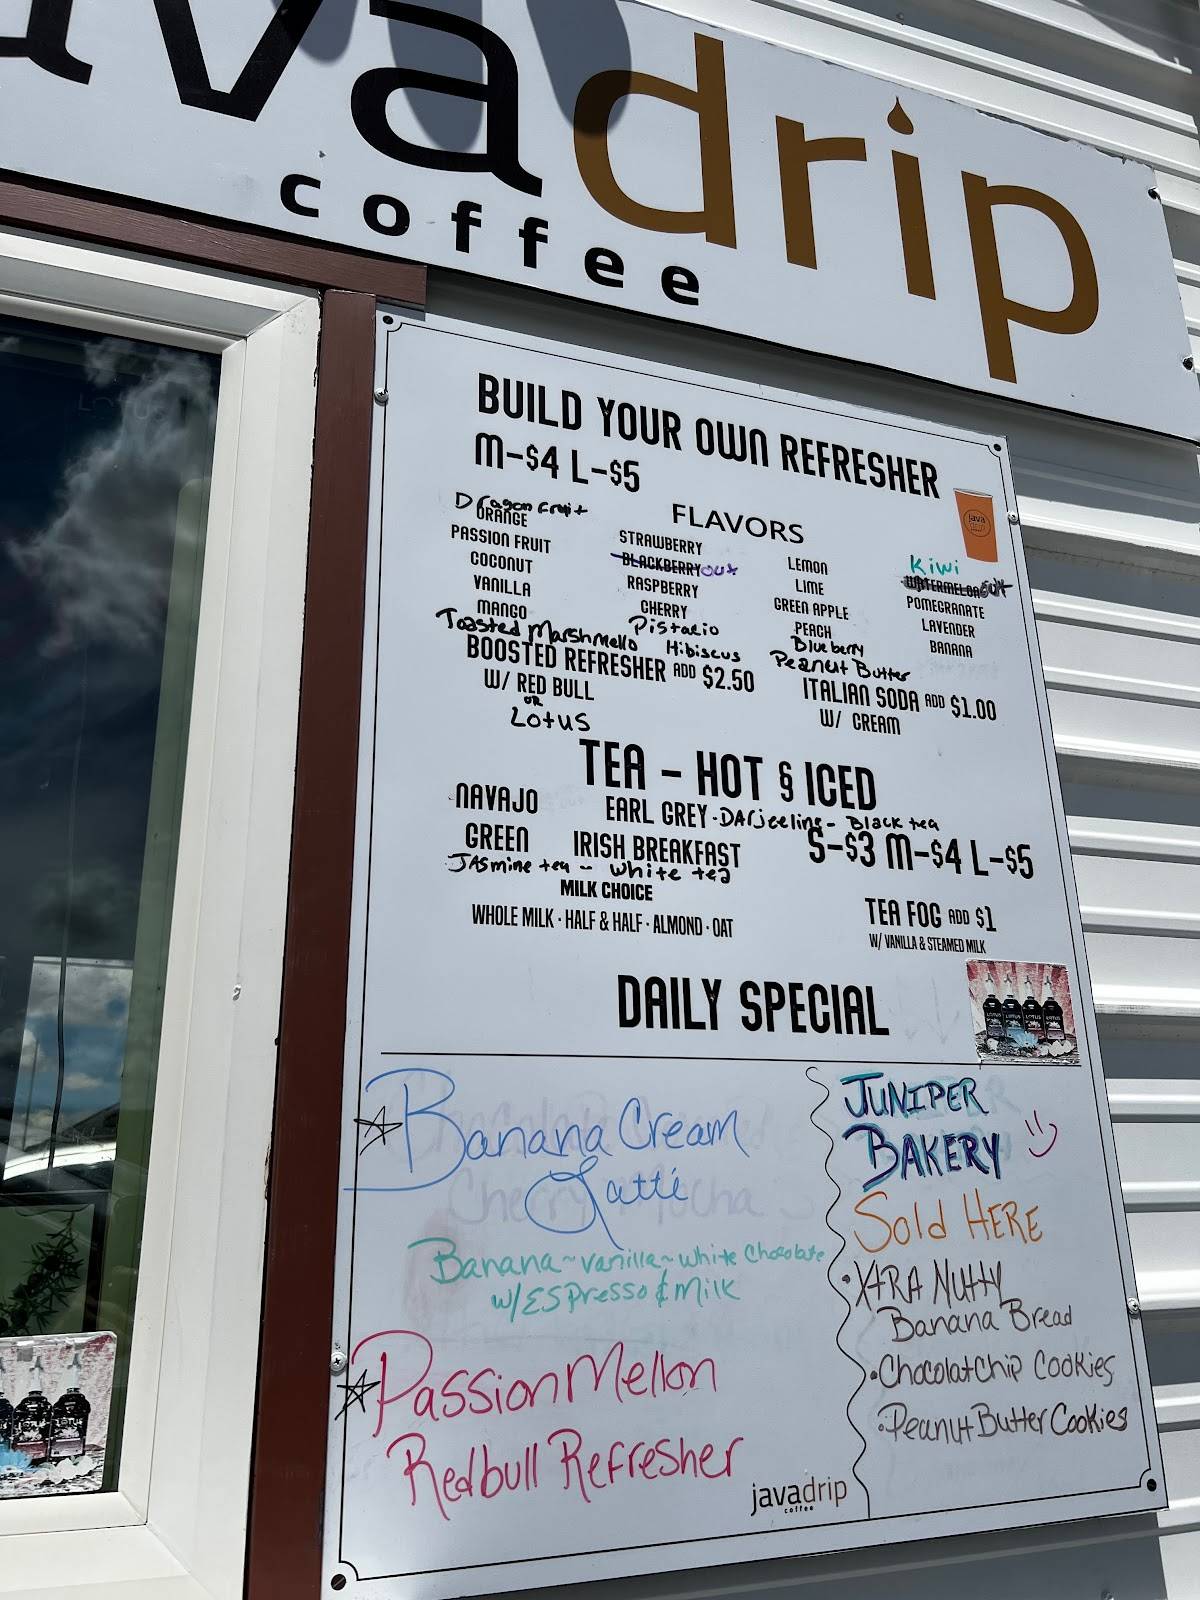 avadrip
coffee
BUILD YOUR OWN REFRESHER
M-$4 L-$5
java
FLAVORS
Dragon fruit
ORANGE
PASSION FRUIT
COCONUT
VANILLA
MANGO
Toasted Marshmello
STRAWBERRY
BLACKBERRY out
RASPBERRY
CHERRY
Pistacio
Hibiscus
LEMON
LIME
GREEN APPLE
PEACH
Blueberry
Peanut Butter
Kiwi
WATERMELON out
POMEGRANATE
LAVENDER
BANANA
BOOSTED REFRESHER ADD $2.50
W/ RED BULL
OR
Lotus
ITALIAN SODA ADD $1.00
W/ CREAM
TEA - HOT & ICED
NAVAJO
EARL GREY - DArjeeling - Black tea
GREEN IRISH BREAKFAST
S-$3 M-$4 L-$5
JASmine tea - white tea
MILK CHOICE
WHOLE MILK · HALF & HALF · ALMOND · OAT
TEA FOG ADD $1
W/ VANILLA & STEAMED MILK
DAILY SPECIAL
LOTUS LOTUS LOTUS LOTUS
Banana Cream
Latté
Cherry Mocha
Banana~vanilla~white Chocolate
w/ESPresso & Milk
Passion Mellon
Redbull Refresher
JUNIPER
BAKERY
Sold HERE
• XTRA NUTTY
Banana Bread
• ChocolatChip Cookies
• Peanut Butter Cookies
javadrip
coffee
LOTUS LOTUS